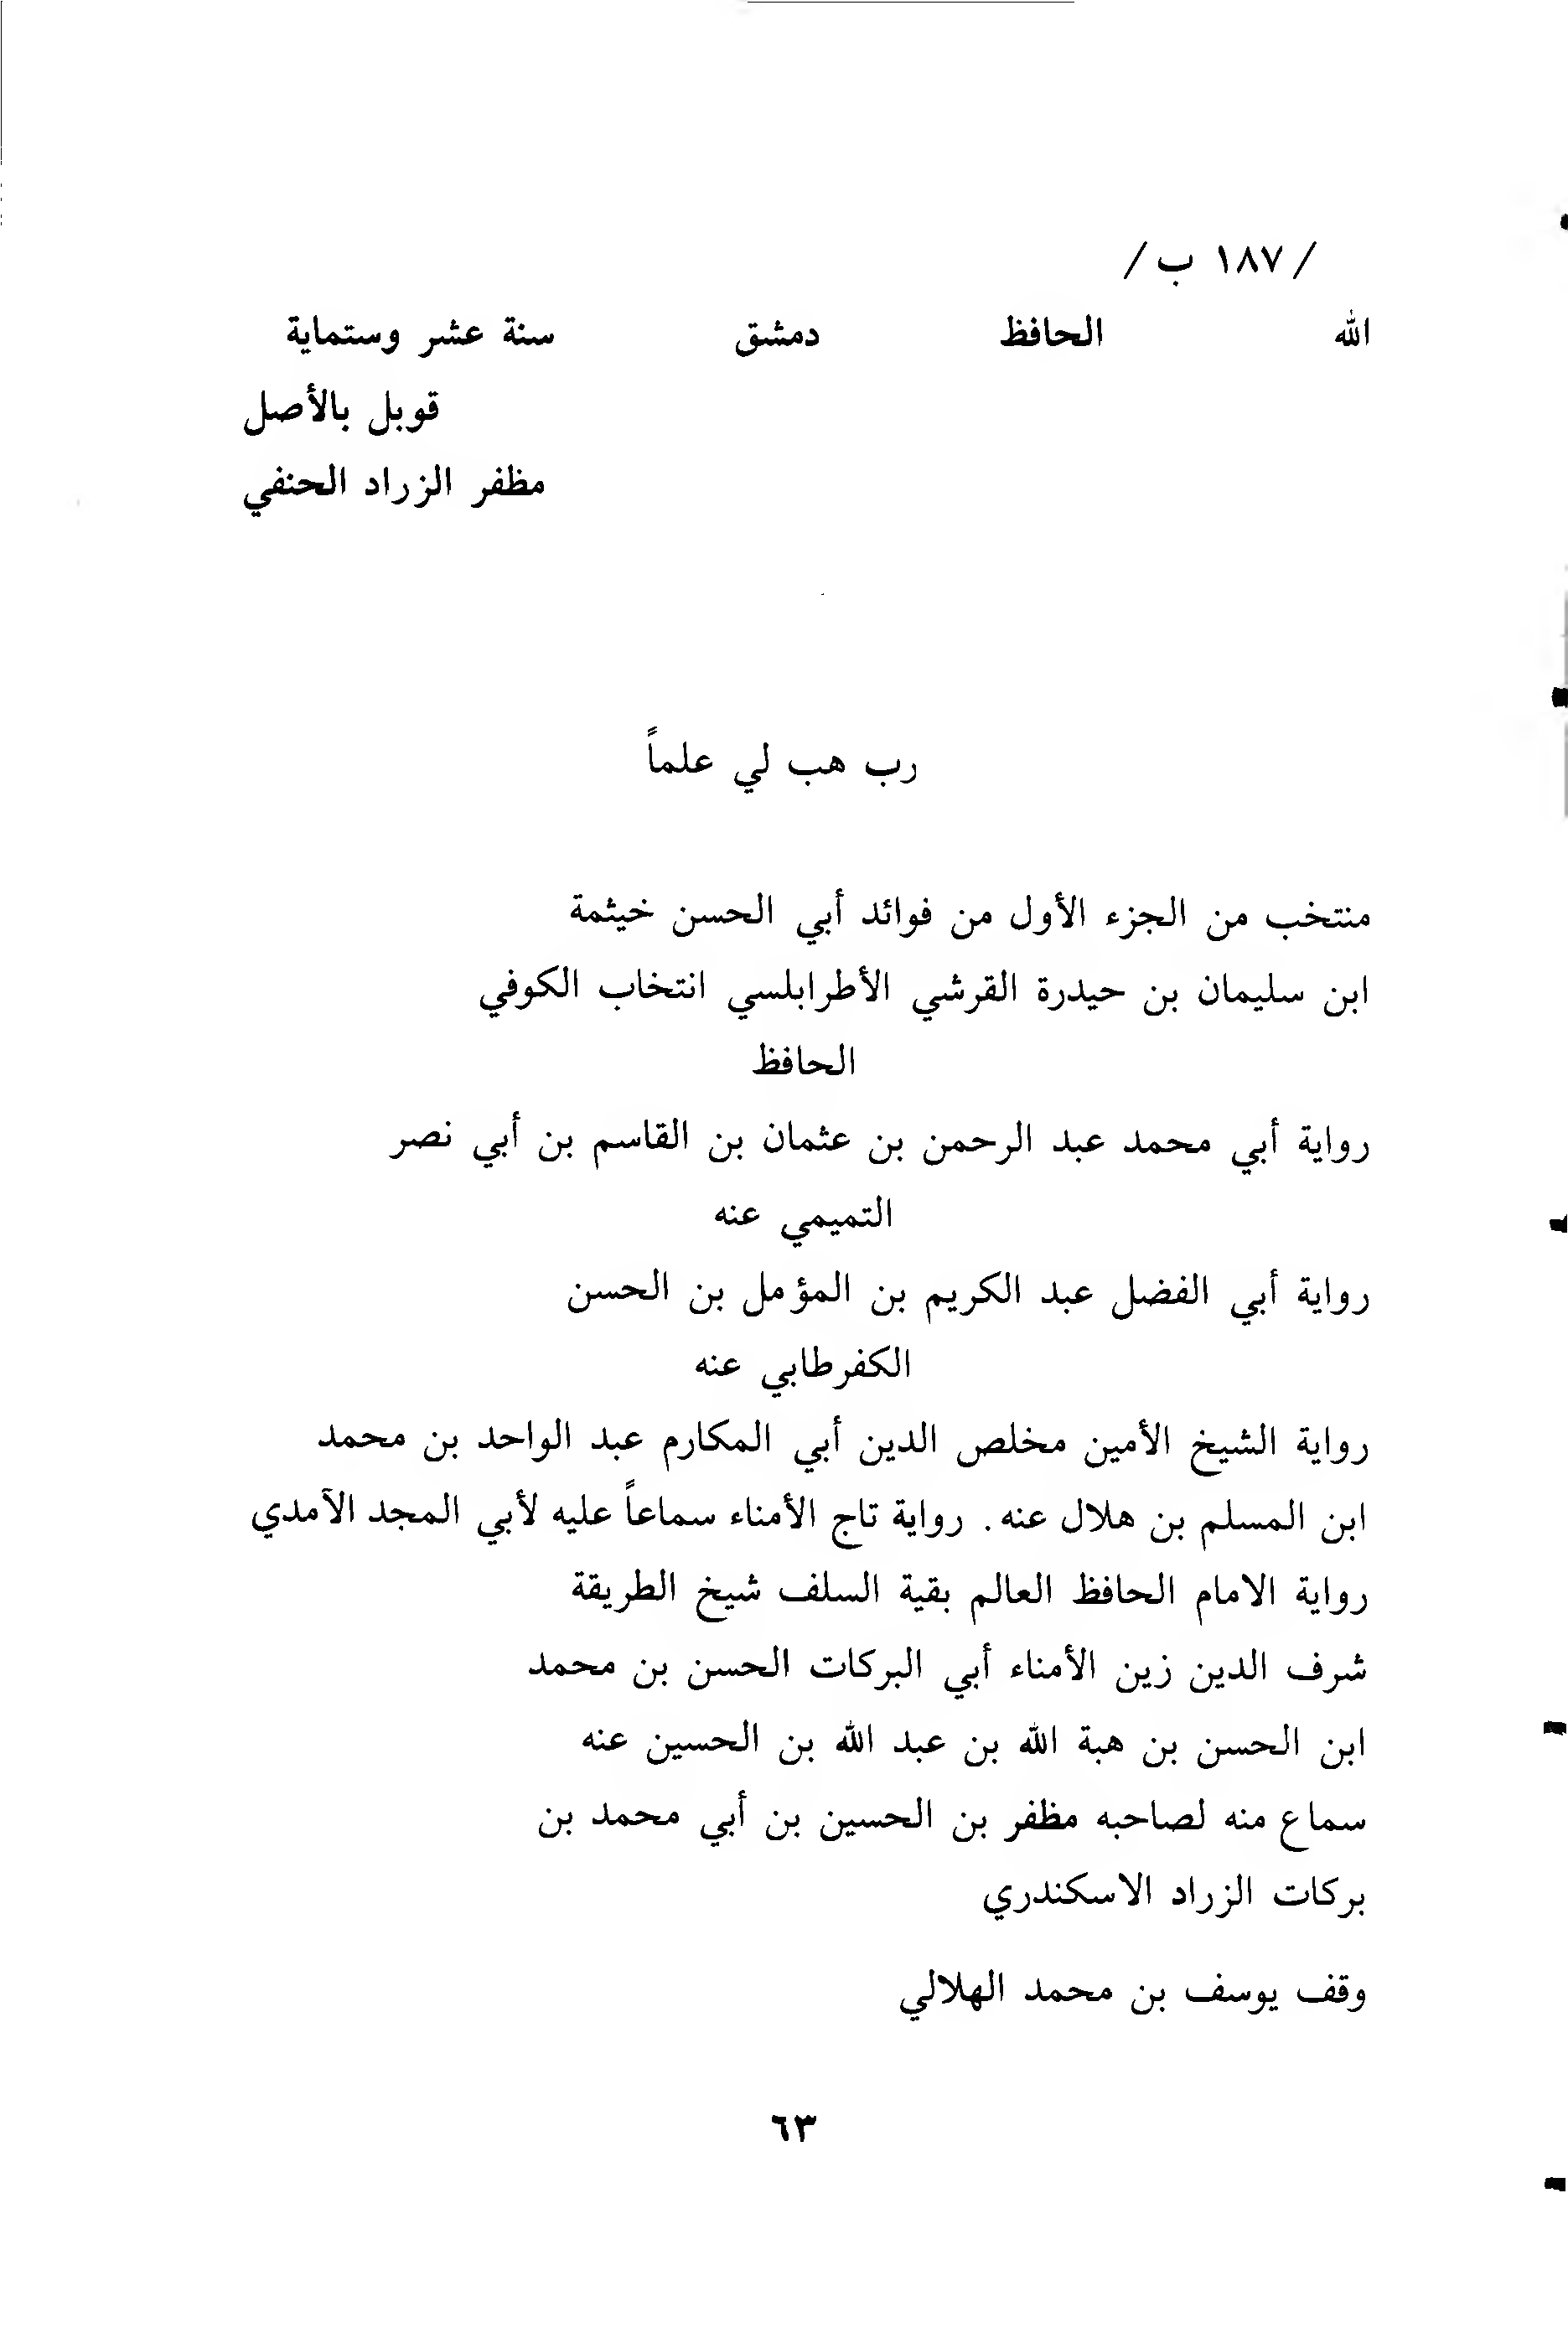 / ١٨٧ ب /
الله الحافظ دمشق سنة عشر وستماية
قوبل بالأصل
مظفر الزراد الحنفي
رب هب لي علماً
منتخب من الجزء الأول من فوائد أبي الحسن خيثمة
ابن سليمان بن حيدرة القرشي الأطرابلسي انتخاب الكوفي
الحافظ
رواية أبي محمد عبد الرحمن بن عثمان بن القاسم بن أبي نصر
التميمي عنه
رواية أبي الفضل عبد الكريم بن المؤمل بن الحسن
الكفرطابي عنه
رواية الشيخ الأمين مخلص الدين أبي المكارم عبد الواحد بن محمد
ابن المسلم بن هلال عنه . رواية تاج الأمناء سماعاً عليه لأبي المجد الآمدي
رواية الامام الحافظ العالم بقية السلف شيخ الطريقة
شرف الدين زين الأمناء أبي البركات الحسن بن محمد
ابن الحسن بن هبة الله بن عبد الله بن الحسين عنه
سماع منه لصاحبه مظفر بن الحسين بن أبي محمد بن
بركات الزراد الاسكندري
وقف يوسف بن محمد الهلالي
٦٣